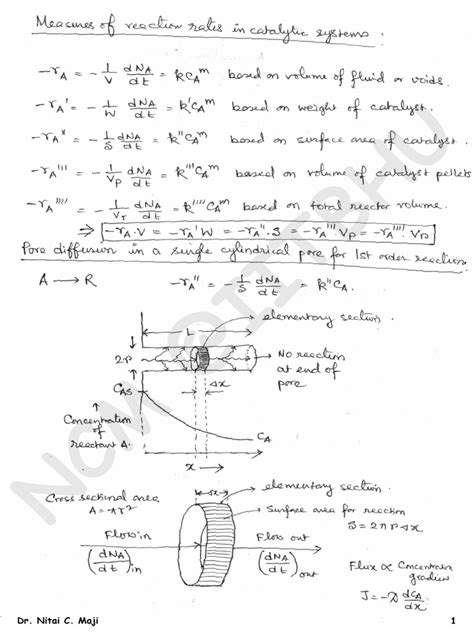 Measures of reaction rates in catalytic systems.
-rA = - 1/V dNA/dt = k CA^m based on volume of fluid or voids.
-rA' = - 1/W dNA/dt = k' CA^m based on weight of catalyst.
-rA'' = - 1/S dNA/dt = k'' CA^m based on surface area of catalyst.
-rA''' = - 1/Vp dNA/dt = k''' CA^m based on volume of catalyst pellets
-rA'''' = - 1/VT dNA/dt = k'''' CA^m based on total reactor volume.
⇒ -rA.V = -rA' W = -rA''.S = -rA''' Vp = -rA''''. VR
Pore diffusion in a single cylindrical pore for 1st order reaction
A → R -rA'' = - 1/S dNA/dt = k'' CA.
elementary section.
L
2r
No reaction
at end of
pore
Δx
CAS
Concentration
of
reactant A.
CA
x →
Cross sectional area
A = πr²
Δx
elementary section.
Surface area for reaction
S = 2πrΔx
Flow in
Flow out
(dNA/dt)in
(dNA/dt)out
Flux ∝ Concentration
gradient
J = -D dCA/dx
NCM @IITBHU
Dr. Nitai C. Maji 1